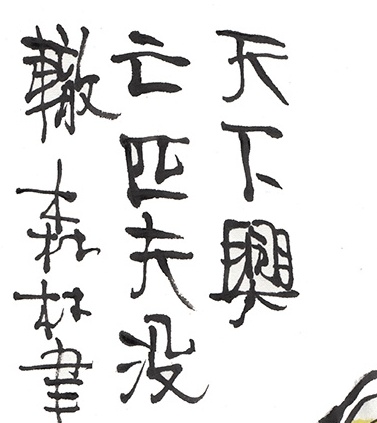 天下興
亡匹夫没
轍 森林書